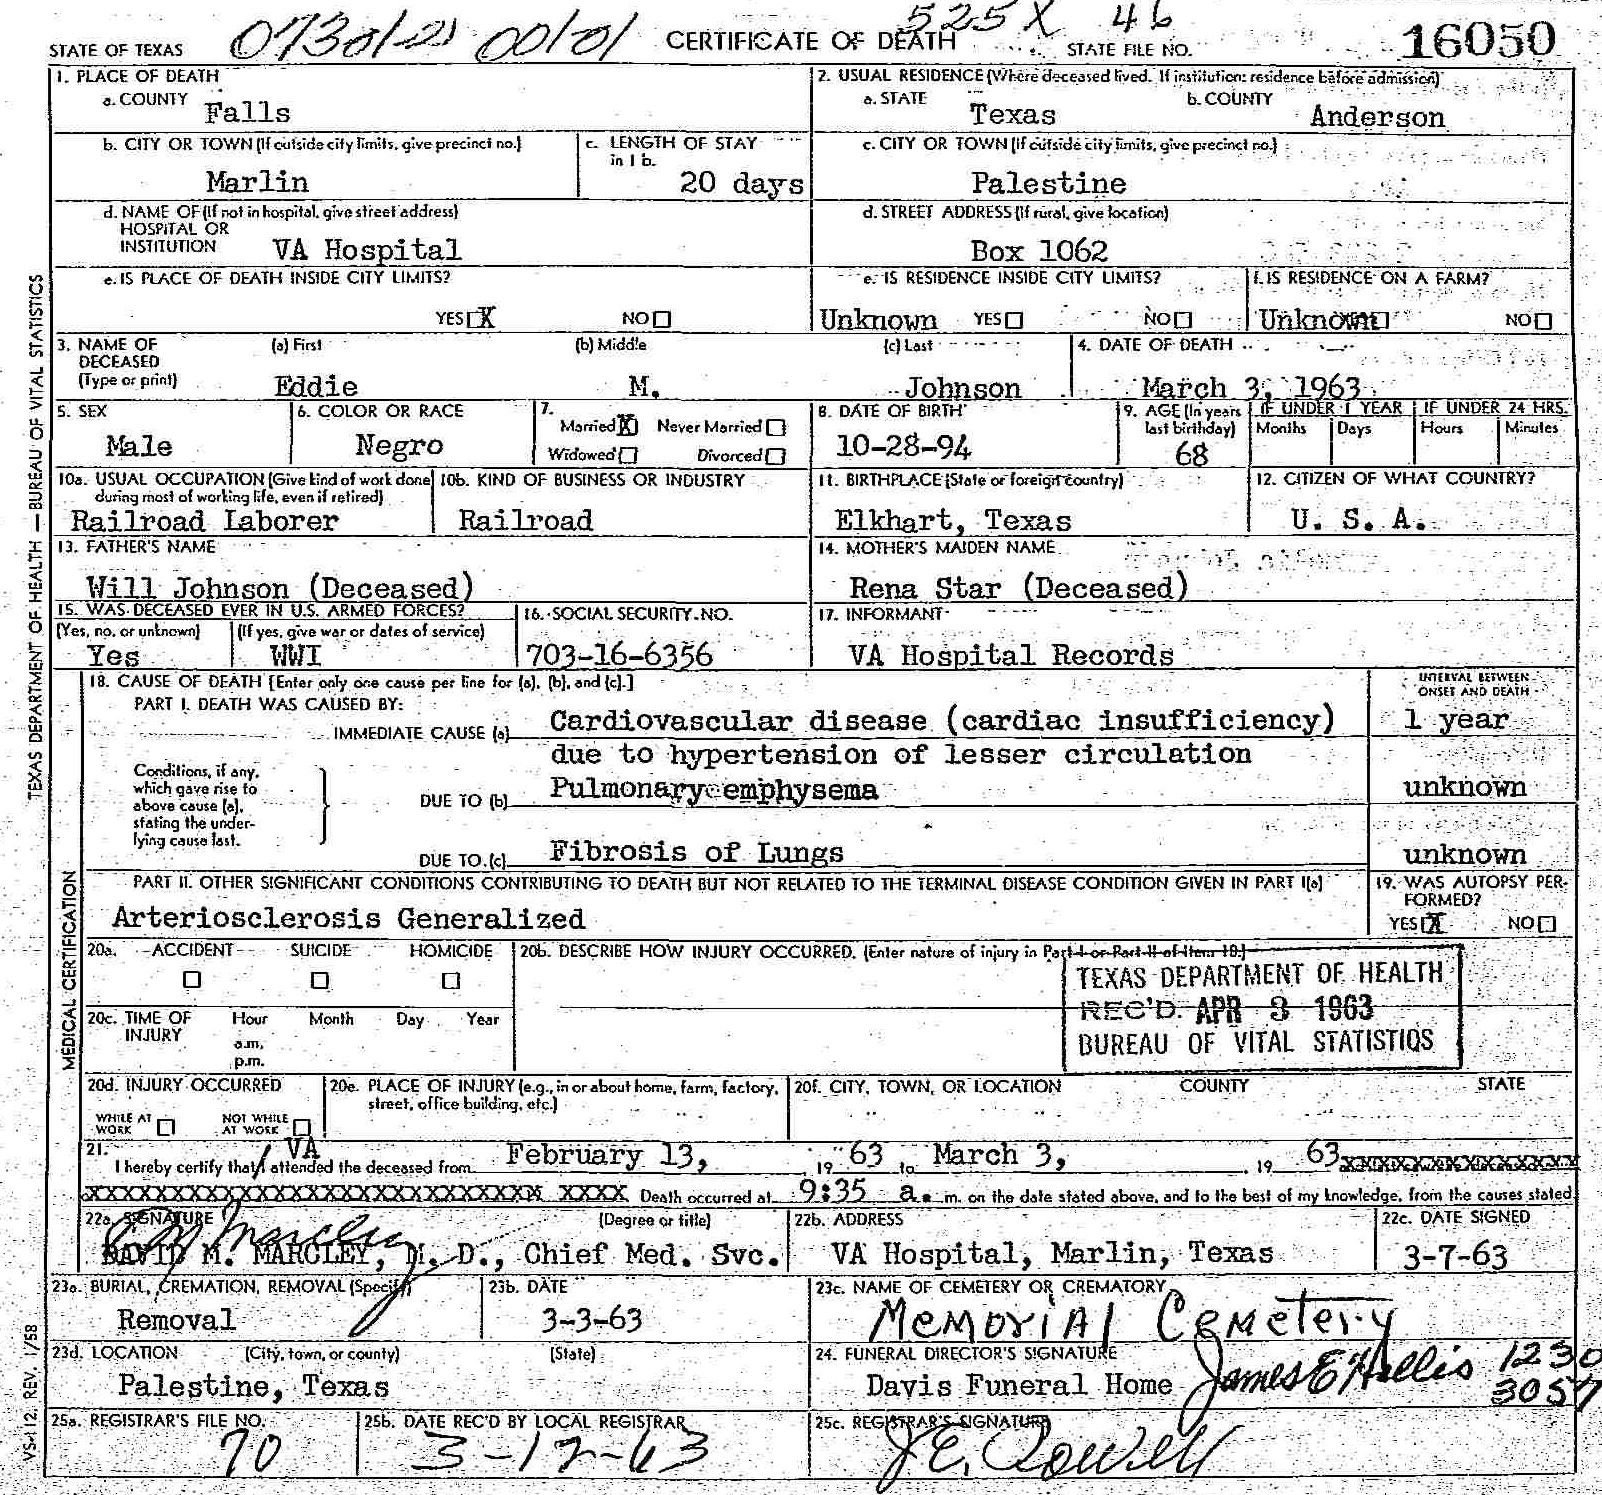 STATE OF TEXAS 07301-21 00101 CERTIFICATE OF DEATH 525X 46 STATE FILE NO. 16050
1. PLACE OF DEATH
a. COUNTY Falls
2. USUAL RESIDENCE (Where deceased lived. If institution: residence before admission)
a. STATE Texas b. COUNTY Anderson
b. CITY OR TOWN (If outside city limits, give precinct no.) Marlin
c. LENGTH OF STAY in 1 b. 20 days
c. CITY OR TOWN (If outside city limits, give precinct no.) Palestine
d. NAME OF (If not in hospital, give street address)
HOSPITAL OR
INSTITUTION VA Hospital
d. STREET ADDRESS (If rural, give location)
Box 1062
e. IS PLACE OF DEATH INSIDE CITY LIMITS?
YES X NO
e. IS RESIDENCE INSIDE CITY LIMITS?
Unknown YES NO
f. IS RESIDENCE ON A FARM?
Unknown NO
3. NAME OF DECEASED (Type or print)
(a) First Eddie
(b) Middle M.
(c) Last Johnson
4. DATE OF DEATH March 3, 1963
5. SEX Male
6. COLOR OR RACE Negro
7. Married X Never Married
Widowed Divorced
8. DATE OF BIRTH 10-28-94
9. AGE (In years last birthday) 68
IF UNDER 1 YEAR Months Days
IF UNDER 24 HRS. Hours Minutes
10a. USUAL OCCUPATION (Give kind of work done during most of working life, even if retired)
Railroad Laborer
10b. KIND OF BUSINESS OR INDUSTRY
Railroad
11. BIRTHPLACE (State or foreign country)
Elkhart, Texas
12. CITIZEN OF WHAT COUNTRY?
U. S. A.
13. FATHER'S NAME
Will Johnson (Deceased)
14. MOTHER'S MAIDEN NAME
Rena Star (Deceased)
15. WAS DECEASED EVER IN U.S. ARMED FORCES?
(Yes, no, or unknown) (If yes, give war or dates of service)
Yes WWI
16. SOCIAL SECURITY NO.
703-16-6356
17. INFORMANT
VA Hospital Records
18. CAUSE OF DEATH [Enter only one cause per line for (a), (b), and (c).]
INTERVAL BETWEEN ONSET AND DEATH
PART I. DEATH WAS CAUSED BY:
IMMEDIATE CAUSE (a) Cardiovascular disease (cardiac insufficiency) 1 year
due to hypertension of lesser circulation
Conditions, if any, which gave rise to above cause (a), stating the underlying cause last.
DUE TO (b) Pulmonary emphysema unknown
DUE TO (c) Fibrosis of Lungs unknown
PART II. OTHER SIGNIFICANT CONDITIONS CONTRIBUTING TO DEATH BUT NOT RELATED TO THE TERMINAL DISEASE CONDITION GIVEN IN PART I(a)
Arteriosclerosis Generalized
19. WAS AUTOPSY PERFORMED?
YES X NO
20a. ACCIDENT SUICIDE HOMICIDE
20b. DESCRIBE HOW INJURY OCCURRED. (Enter nature of injury in Part I or Part II of Item 18.)
TEXAS DEPARTMENT OF HEALTH
REC'D. APR 3 1963
BUREAU OF VITAL STATISTICS
20c. TIME OF INJURY Hour Month Day Year
a.m.
p.m.
20d. INJURY OCCURRED
WHILE AT WORK NOT WHILE AT WORK
20e. PLACE OF INJURY (e.g., in or about home, farm, factory, street, office building, etc.)
20f. CITY, TOWN, OR LOCATION COUNTY STATE
21. VA
I hereby certify that I attended the deceased from February 13, 19 63 to March 3, 19 63 XXXXXXXXXXXXXXXXX
XXXXXXXXXXXXXXXXXXXXXXXXXXX XXXX Death occurred at 9:35 a. m. on the date stated above, and to the best of my knowledge, from the causes stated
22a. SIGNATURE (Degree or title)
DAVID M. MARCLEY, M. D., Chief Med. Svc.
22b. ADDRESS
VA Hospital, Marlin, Texas
22c. DATE SIGNED
3-7-63
23a. BURIAL, CREMATION, REMOVAL (Specify)
Removal
23b. DATE
3-3-63
23c. NAME OF CEMETERY OR CREMATORY
Memorial Cemetery
23d. LOCATION (City, town, or county) (State)
Palestine, Texas
24. FUNERAL DIRECTOR'S SIGNATURE
Davis Funeral Home James E Hollis 1230
3057
25a. REGISTRAR'S FILE NO.
70
25b. DATE REC'D BY LOCAL REGISTRAR
3-12-63
25c. REGISTRAR'S SIGNATURE
TEXAS DEPARTMENT OF HEALTH — BUREAU OF VITAL STATISTICS
MEDICAL CERTIFICATION
VS-112 REV. 1/58